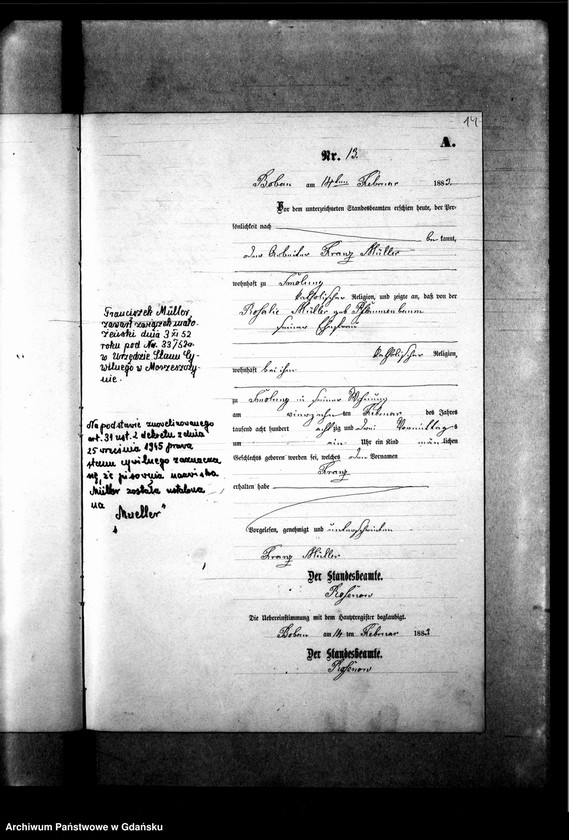 14
A.
Nr. 13.
Boban am 14ten Februar 1883.
Vor dem unterzeichneten Standesbeamten erschien heute, der Per-
sönlichkeit nach
be kannt,
der Arbeiter Franz Müller
wohnhaft zu Smolong
katholischer Religion, und zeigte an, daß von der
Rosalie Müller geb Pflaumenbaum
seiner Ehefrau
katholischer Religion,
wohnhaft bei ihm
zu Smolong in seiner Wohnung
am vierzehn ten Februar des Jahres
tausend acht hundert achtzig und drei Vormittags
um ein Uhr ein Kind männlichen
Geschlechts geboren worden sei, welches den Vornamen
Franz
erhalten habe
Vorgelesen, genehmigt und unterschrieben
Franz Müller
Der Standesbeamte.
Rosenow
Die Uebereinstimmung mit dem Hauptregister beglaubigt.
Boban am 14 ten Februar 1883
Der Standesbeamte.
Rosenow
Franciszek Müller
zawarł związek mał-
żeński dnia 3 XI 52
roku pod Nr. 33/52 r.
w Urzędzie Stanu Cy-
wilnego w Morzeszczy-
nie.
Na podstawie znowelizowanego
art. 31 ust. 2 dekretu z dnia
25 września 1945 prawa
stanu cywilnego zaznacza
się, że pisownia nazwiska
Müller została ustalona
na
"Mueller"
Archiwum Państwowe w Gdańsku